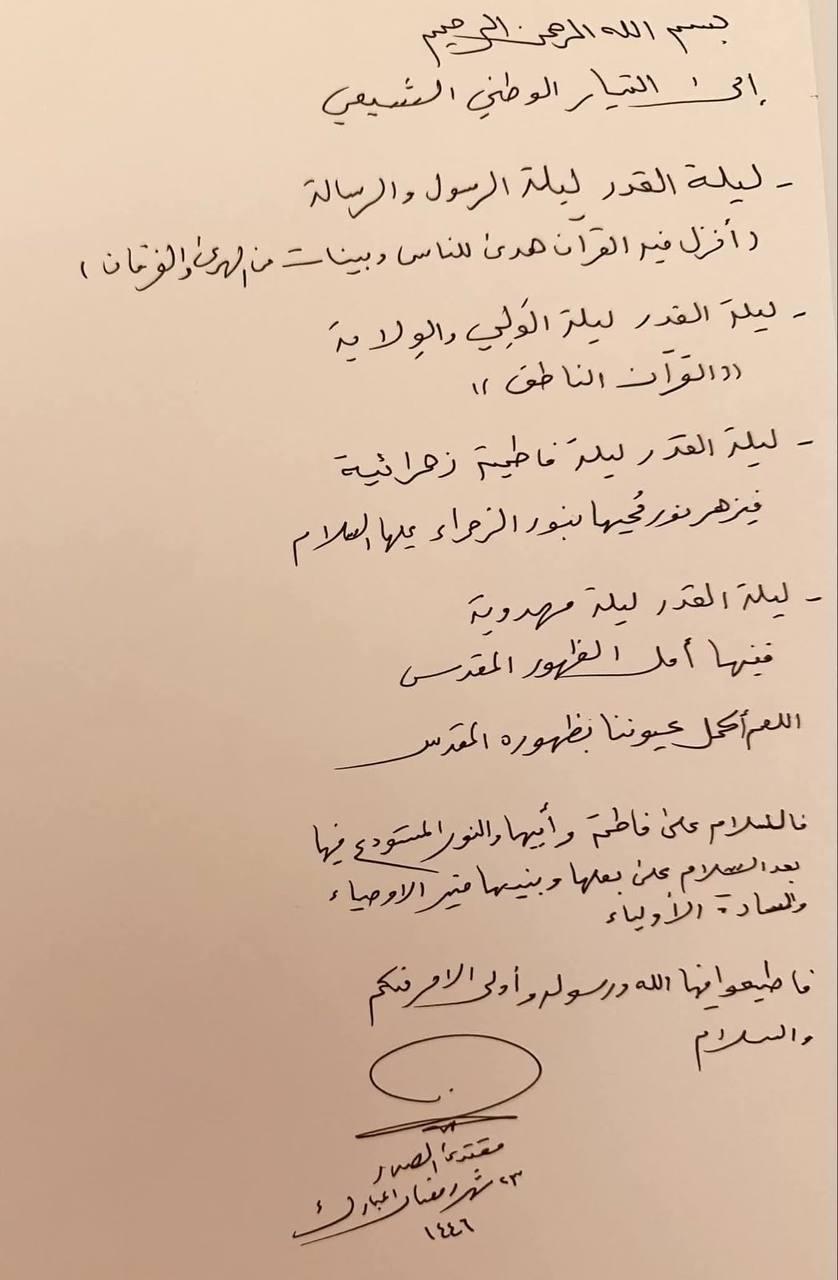 بسم الله الرحمن الرحيم
إلى التيار الوطني الشيعي
- ليلة القدر ليلة الرسول والرسالة
(أنزل فيه القرآن هدىً للناس وبينات من الهدى والفرقان)
- ليلة القدر ليلة الوَلي والوِلاية
((القرآن الناطق))
- ليلة القدر ليلة فاطمية زهرائية
فيزهر نور مُحيها بنور الزهراء عليها السلام
- ليلة القدر ليلة مهدوية
ففيها أمل الظهور المقدس
اللهم أكحل عيوننا بظهوره المقدس
فالسلام على فاطمة وأبيها والنور المستودع فيها
بعد السلام على بعلها وبنيها خير الاوصياء
والسادة الأولياء
فاطيعوا فيها الله ورسوله وأولي الامر منكم
والسلام
مقتدى الصدر
٢٣ شهر رمضان المبارك
١٤٤٦